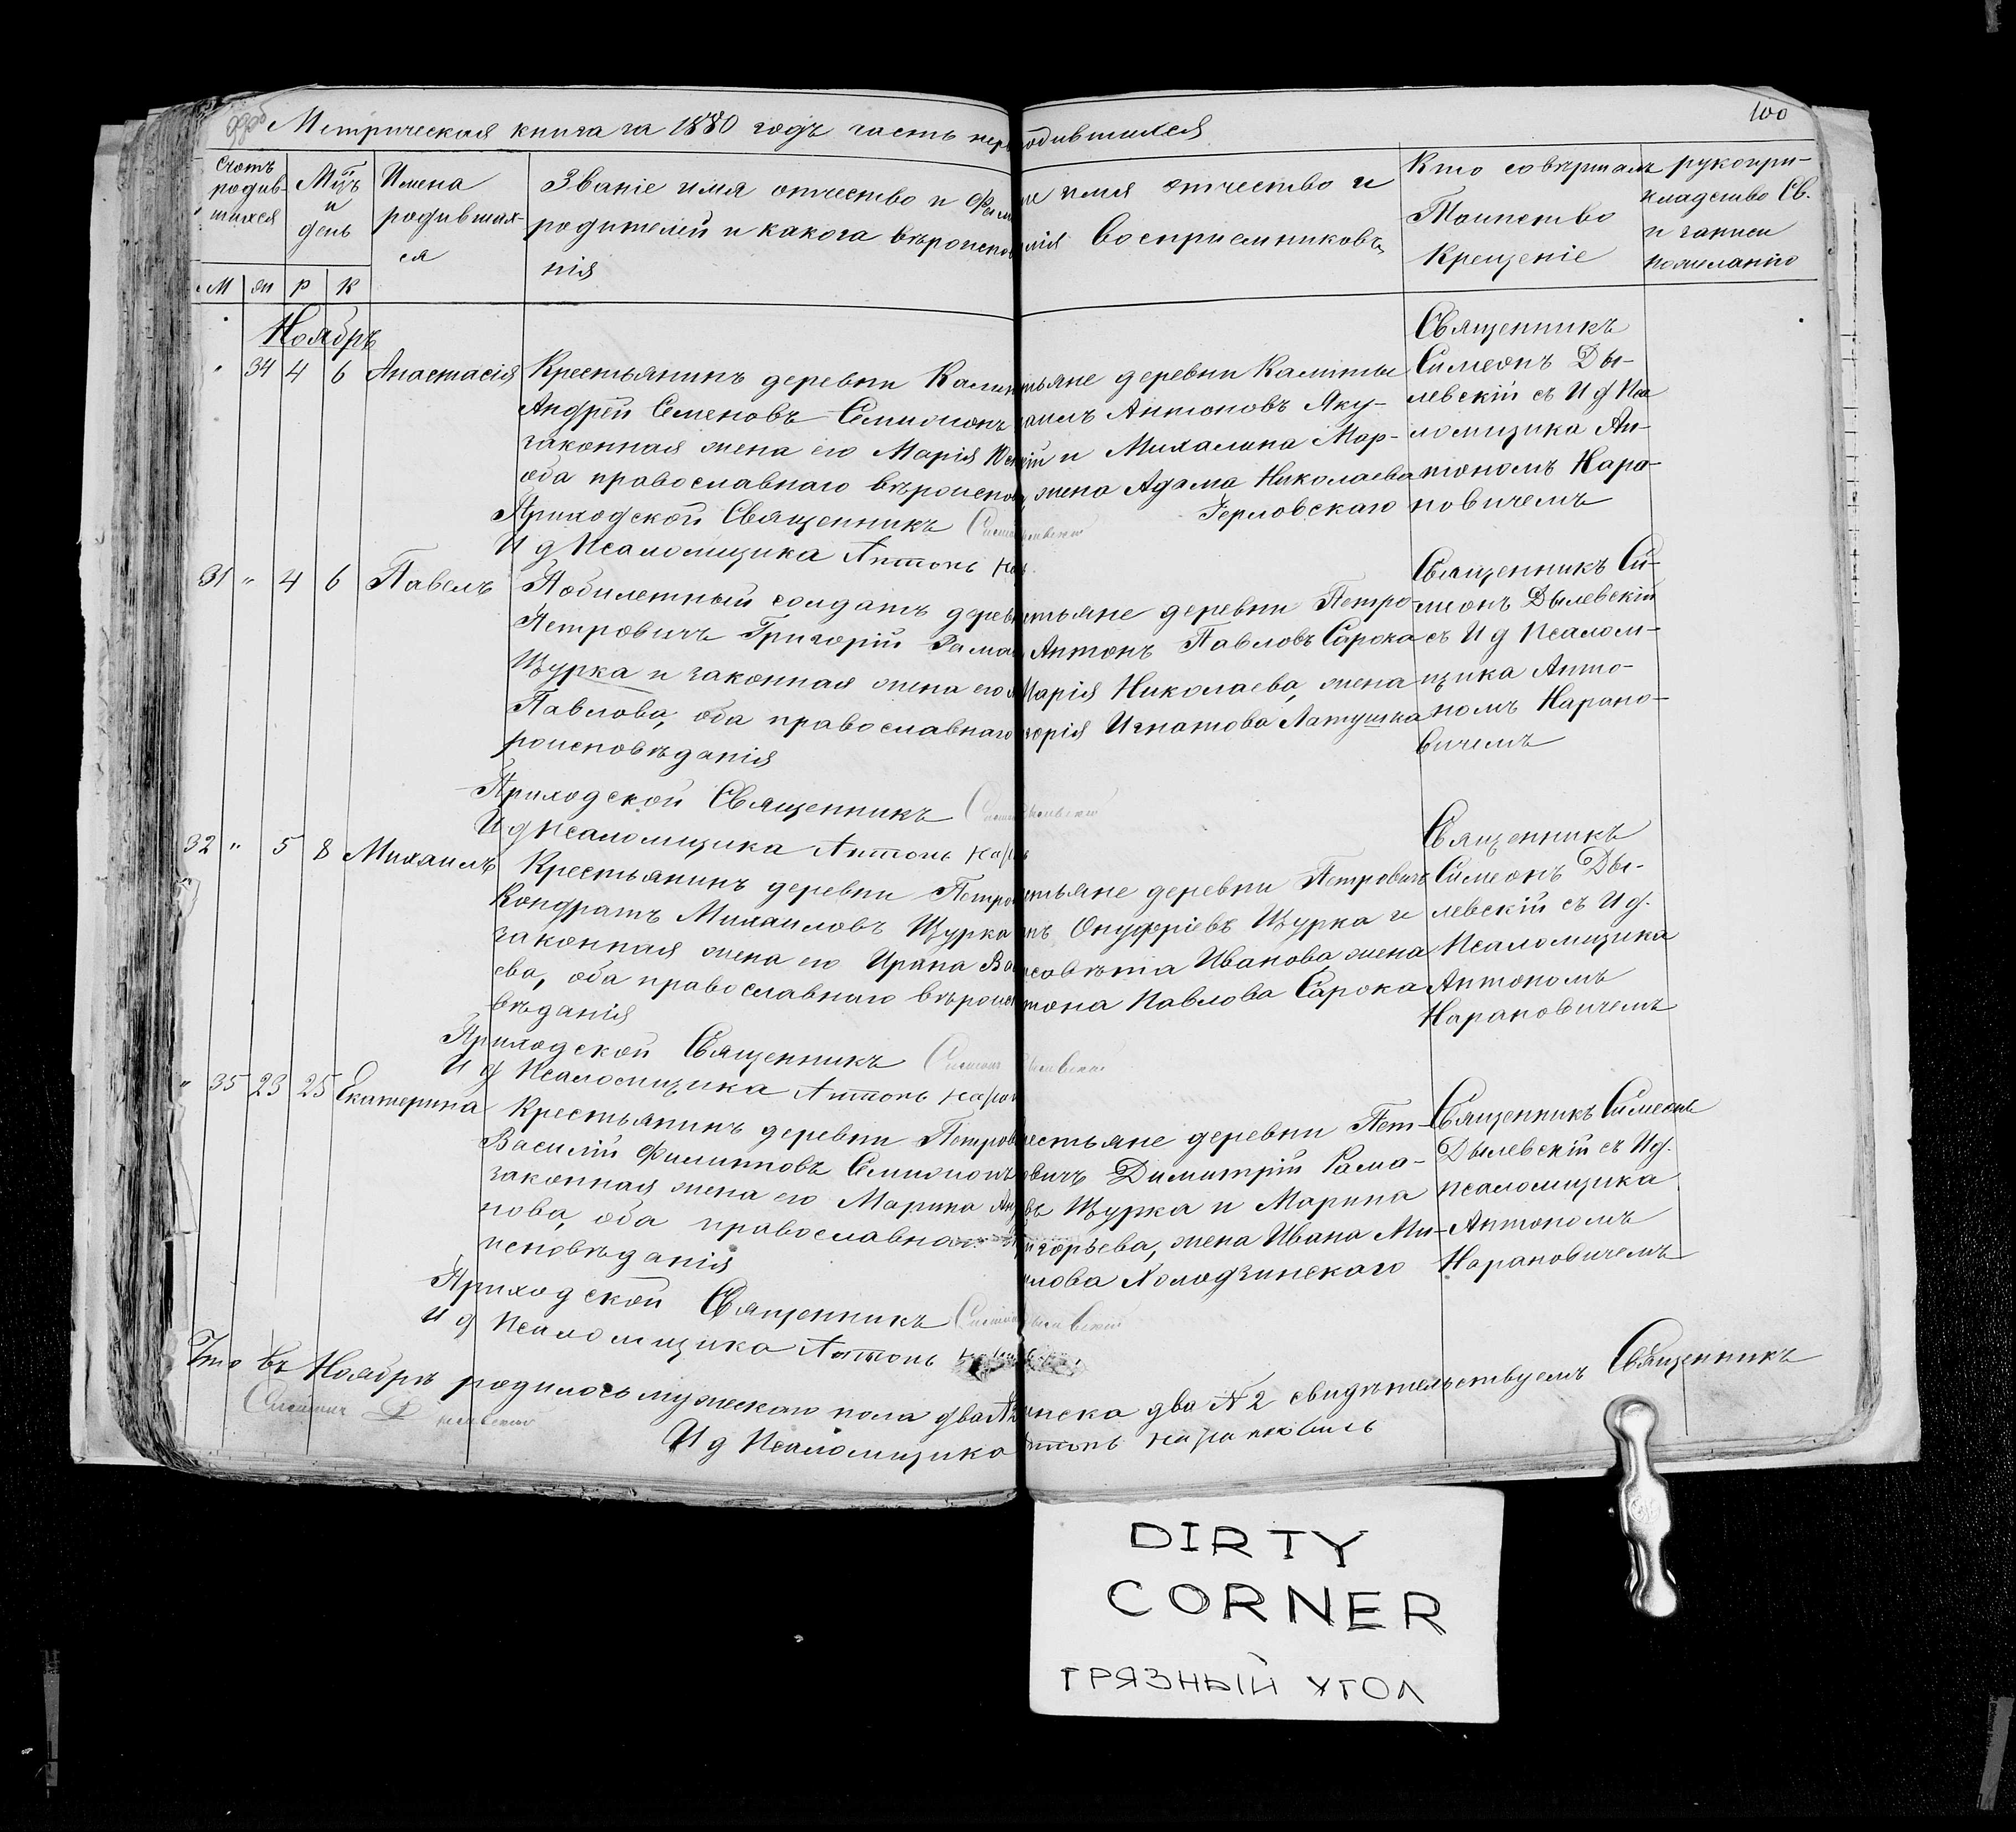 Метрическая книга за 1880 годъ часть пер
одившихся
100
Счотъ родив-шихся
Мцъ и день
Имена родивших-ся
Званіе имя отчество и Фам
родителей и какога вѣроиспов
нія
ие имя отчество и
милія Восприемниковъ
Кто совершалъ
Таинство
Крещеніе
рукопри-
кладство Св.
и записи
пожеланію
М ж Р К
Ноябрь
" 34 4 6 Анастасія
Крестьянинъ деревни Калит
Андрей Семеновъ Семижонъ
законная жена его Марія
оба православнаго вѣроиспов
Приходской Священникъ
И д Псаломщика Антонъ Нар
тьяне деревни Калиты
аилъ Антоновъ Яку-
ій и Михалина Мар-
жена Адама Николаева
Герловскаго
Священникъ
Симеонъ Ды-
левскій съ И д Пса
ломщика Ан-
тономъ Нара-
новичемъ
31 " 4 6 Павелъ
Побилетный солдатъ дерев
Петровичъ Григорій Рома
Щурка и законная жена его
Павлова, оба православнаго
роисповѣданія
Приходской Священникъ
И д Псаломщика Антонъ Нар
стьяне деревни Петро-
Антонъ Павловъ Сарока
Марія Николаева, жена
горія Игнатова Латушка
Священникъ Си-
меонъ Дылевскій
съ И д Псалом-
щика Анто-
номъ Нарано-
вичемъ
32 " 5 8 Михаилъ
Крестьянинъ деревни Петро
Кондратъ Михаиловъ Щурка
законная жена его Ирина Ва
ева, оба православнаго вѣроис
вѣданія
Приходской Священникъ Симеонъ
И д Псаломщика Антонъ Наран
стьяне деревни Петровичъ
нъ Онуфріевъ Щурка и
совѣта Иванова жена
тона Павлова Сарока
Священникъ
Симеонъ Ды-
левскій съ И д.
Псаломщика
Антономъ
Нарановичемъ
" 35 23 25 Екатерина
Крестьянинъ деревни Петров
Василій Филиповъ Семижонъ
законная жена его Марина
нова, оба православнаго
исповѣданія
Приходской Священникъ
И д Псаломщика Антонъ
рестьяне деревни Пет-
овичъ Димитрій Рама-
въ Щурка и Марина
игорьева, жена Ивана Ми-
лова Холодзинскаго
Священникъ Симеонъ
Дылевскій съ И д.
псаломщика
Антономъ
Нарановичемъ
Что въ Ноябрѣ родилось мужескаго пола два №2
нска два №2 свидѣтельствуемъ Священникъ
Симеонъ Дылевскій
И д Псаломщика
нтонъ Нарановичь
DIRTY
CORNER
ГРЯЗНЫЙ УГОЛ